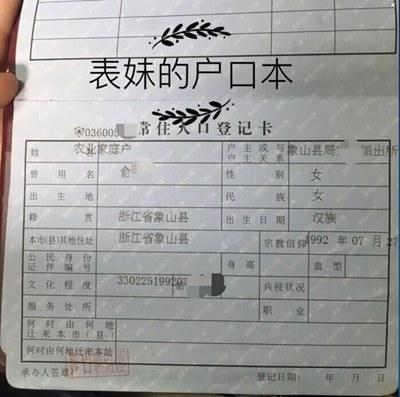 表妹的户口本
常住人口登记卡
036005
姓 农业家庭户 户主或与户主关系 象山县局 派出所
曾用名 俞 性别 女
出生地 民族 女
籍贯 浙江省象山县 出生日期 汉族
本市(县)其他住址 浙江省象山县 宗教信仰 1992 年 07 月 27
公民身份证件编号 身高 血型
文化程度 330225199207 兵役状况
服务处所 职业
何时由何地迁来本市(县)
何时由何地迁来本址
承办人签章: 登记日期: 年 月 日